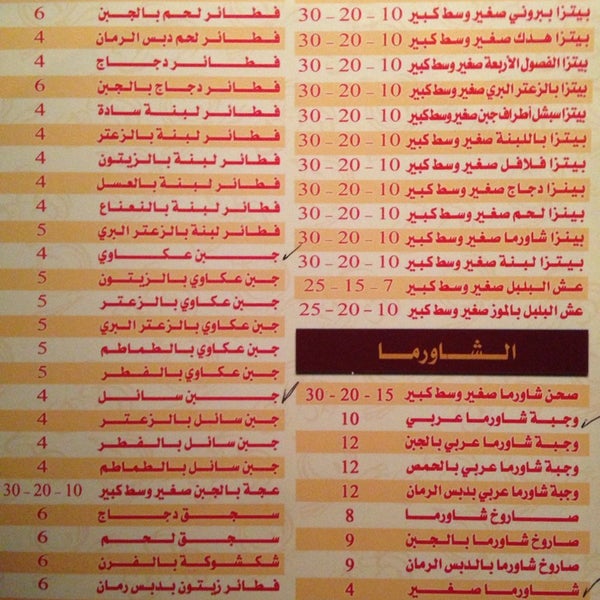 بيتزا ببروني صغير وسط كبير 10 - 20 - 30
بيتزا هدك صغير وسط كبير 10 - 20 - 30
بيتزا الفصول الأربعة صغير وسط كبير 10 - 20 - 30
بيتزا بالزعتر البري صغير وسط كبير 10 - 20 - 30
بيتزا سبشل أطراف جبن صغير وسط كبير 10 - 20 - 30
بيتزا باللبنة صغير وسط كبير 10 - 20 - 30
بيتزا فلافل صغير وسط كبير 10 - 20 - 30
بيتزا دجاج صغير وسط كبير 10 - 20 - 30
بيتزا لحم صغير وسط كبير 10 - 20 - 30
بيتزا شاورما صغير وسط كبير 10 - 20 - 30
بيتزا لبنة صغير وسط كبير 10 - 20 - 30
عش البلبل صغير وسط كبير 7 - 15 - 25
عش البلبل بالموز صغير وسط كبير 10 - 20 - 25
الشاورما
صحن شاورما صغير وسط كبير 15 - 20 - 30
وجبة شاورما عربي 10
وجبة شاورما عربي بالجبن 12
وجبة شاورما عربي بالحمص 12
وجبة شاورما عربي بدبس الرمان 12
صاروخ شاورما 8
صاروخ شاورما بالجبن 9
صاروخ شاورما بالدبس الرمان 9
شاورما صغير 4
فطائر لحم بالجبن 6
فطائر لحم دبس الرمان 4
فطائر دجاج 4
فطائر دجاج بالجبن 6
فطائر لبنة سادة 4
فطائر لبنة بالزعتر 4
فطائر لبنة بالزيتون 4
فطائر لبنة بالعسل 4
فطائر لبنة بالنعناع 4
فطائر لبنة بالزعتر البري 5
جبن عكاوي 4
جبن عكاوي بالزيتون 5
جبن عكاوي بالزعتر 5
جبن عكاوي بالزعتر البري 5
جبن عكاوي بالطماطم 5
جبن عكاوي بالفطر 5
جبن سائل 4
جبن سائل بالزعتر 4
جبن سائل بالفطر 4
جبن سائل بالطماطم 4
عجة بالجبن صغير وسط كبير 10 - 20 - 30
سجق دجاج 6
سجق لحم 6
شكشوكة بالفرن 6
فطائر زيتون بدبس رمان 6